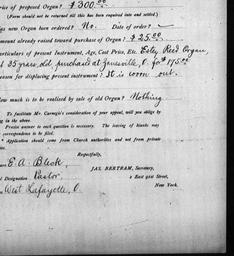 rice of proposed Organ? $300.00
(Form should not be returned till this has been required into and settled.)
as new Organ been ordered? No. Date of order?
mount already raised toward purchase of Organ? $25.00
articulars of present Instrument, Age, Cost Price, Etc. Estey Reed Organ,
t 35 years old, purchased at Zanesville, O. for $175.00
eason for displacing present instrument? It is worn out.
ow much is to be realized by sale of old Organ? Nothing
To facilitate Mr. Carnegie's consideration of your appeal, will you oblige by
ing in the above.
Precise answer to each question is necessary. The leaving of blanks may
correspondence to be filed.
Application should come from Church authorities and not from private
Respectfully,
E. A.
JAS. BERTRAM, Secretary,
l Designation Pastor
2 East 91st Street,
West Lafayette, O.
New York.